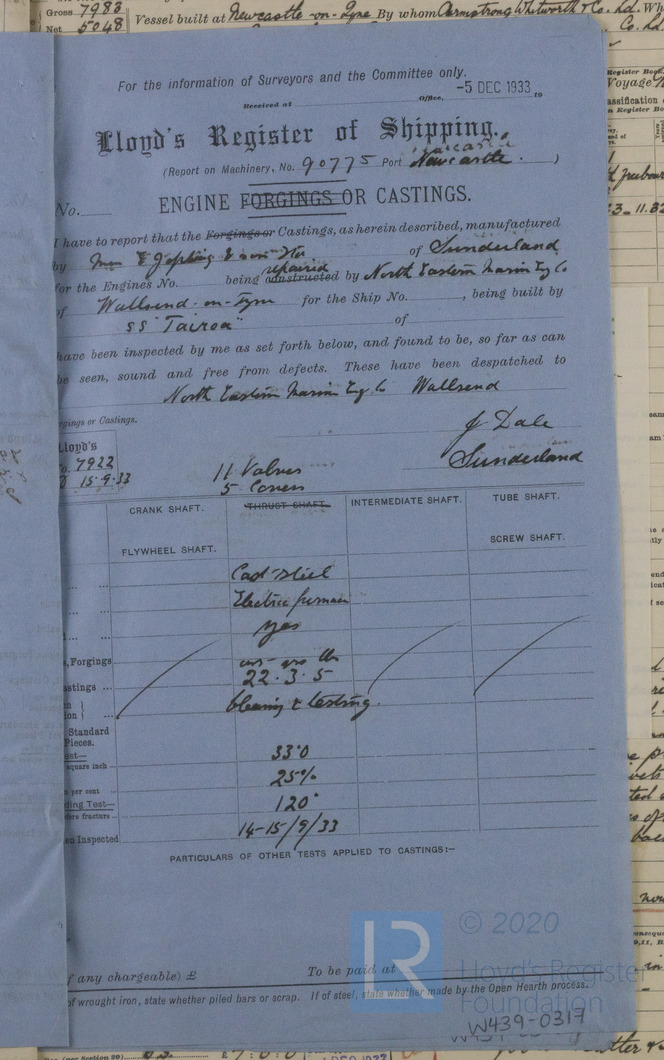 Gross 7983
Net 5048
Vessel built at Newcastle-on-Tyne By whom Armstrong Whitworth & Co. Ld.
Co. Ld.
For the information of Surveyors and the Committee only.
Received at Office, -5 DEC 1933
Lloyd's Register of Shipping.
(Report on Machinery, No. 90775 Port Newcastle.)
No.
ENGINE FORGINGS OR CASTINGS.
I have to report that the Forgings or Castings, as herein described, manufactured
by E Jopling & of Sunderland
for the Engines No. being constructed repaired by North Eastern Marine Eg Co
of Wallsend-on-Tyne for the Ship No. , being built by
SS "Tairoa" of
have been inspected by me as set forth below, and found to be, so far as can
be seen, sound and free from defects. These have been despatched to
North Eastern Marine Eg Co Wallsend
rgings or Castings.
J Dale
Sunderland
Lloyd's
No. 7922
15-9-33
11 Valves
5 Covers
CRANK SHAFT.
THRUST SHAFT.
INTERMEDIATE SHAFT.
TUBE SHAFT.
FLYWHEEL SHAFT.
SCREW SHAFT.
Cast Steel
Electric furnace
yes
s, Forgings
cwt - qrs lbs
astings ... 22 . 3 . 5
cleaning & testing.
Standard
Pieces.
est—
33.0
square inch
25%
per cent
ding Test—
120°
fore fracture
14-15/9/33
en Inspected
PARTICULARS OF OTHER TESTS APPLIED TO CASTINGS:—
f any chargeable) £ To be paid at
of wrought iron, state whether piled bars or scrap. If of steel, state whether made by the Open Hearth process.
LR
© 2020
Lloyd's Register
Foundation
W439-0317